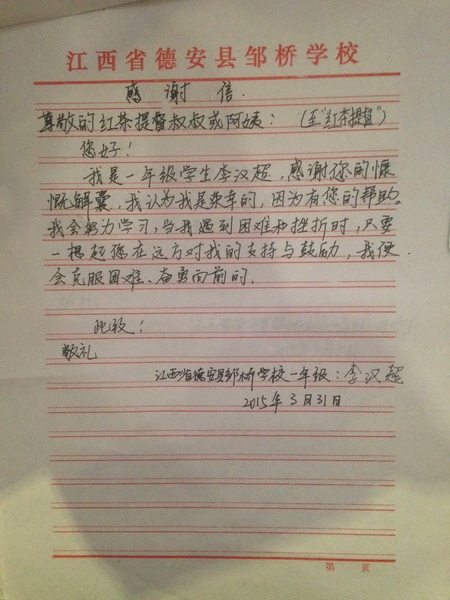 江西省德安县邹桥学校
感谢信.
尊敬的红茶提督叔叔或阿姨：（至“红茶提督”）
您好！
我是一年级学生李汉超，感谢你的慷
慨解囊，我认为我是荣幸的，因为有您的帮助。
我会努力学习，当我遇到困难和挫折时，只要
一想起您在远方对我的支持与鼓励，我便
会克服困难、奋勇向前的.
此致！
敬礼
江西省德安县邹桥学校一年级：李汉超
2015年3月31日
第 页